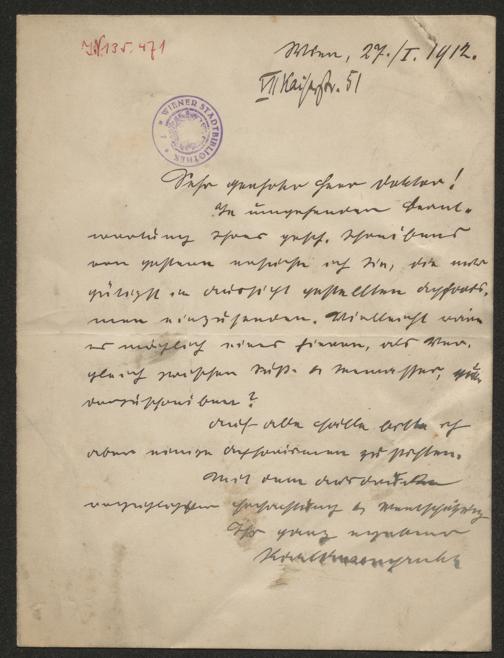 J.N. 135.471
Wien, 27./I. 1912.
VII Kaiserstr. 51
WIENER STADTBIBLIOTHEK
Sehr geehrter Herr Doktor!
In umgehender Beant-
wortung Ihres gesch. Schreibens
von gestern ersuche ich Sie, die mir
gütigst in Aussicht gestellten Aphoris-
men einzusenden. Vielleicht wäre
es möglich einen, als Ver-
gleich zwischen &
vorzuschreiben?
Auf alle Fälle bitte ich
aber einige Aphorismen zu
Mit dem Ausdrucke
vorzüglicher Hochachtung & Wertschätzung
Ihr ganz ergebener